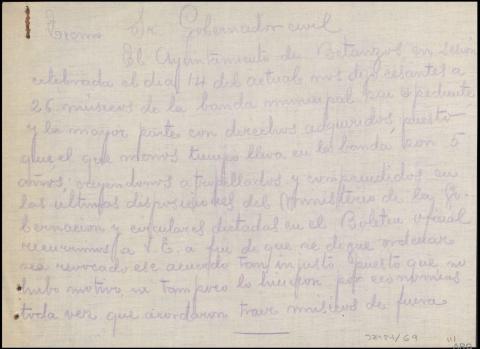 Excmo Sr Gobernador civil
El Ayuntamiento de Betanzos en sesión
celebrada el dia 14 del actual nos dejo cesantes a
26 músicos de la banda municipal sin expediente
y la mayor parte con derechos adquiridos, puesto
que el que menos tiempo lleva en la banda, son 5
años; creyendonos atropellados y comprendidos en
las últimas disposiciones del Ministerio de la Go-
bernacion y circulares dictadas en el Boletin oficial
recurrimos a V.E. a fin de que se digne ordenar
sea revocado ese acuerdo tan injusto puesto que no
hubo motivo, ni tampoco lo hicieron por economias
toda vez que acordaron traer músicos de fuera